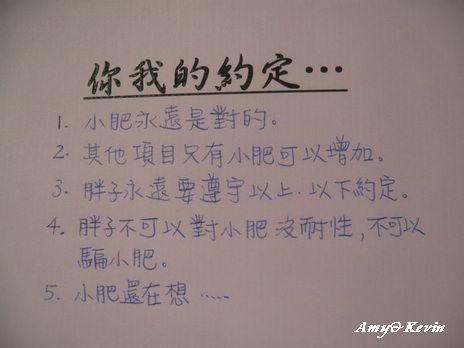 你我的約定…
1. 小肥永遠是對的。
2. 其他項目只有小肥可以增加。
3. 胖子永遠要遵守以上.以下約定。
4. 胖子不可以對小肥沒耐性,不可以
騙小肥。
5. 小肥還在想.....
Amy&Kevin